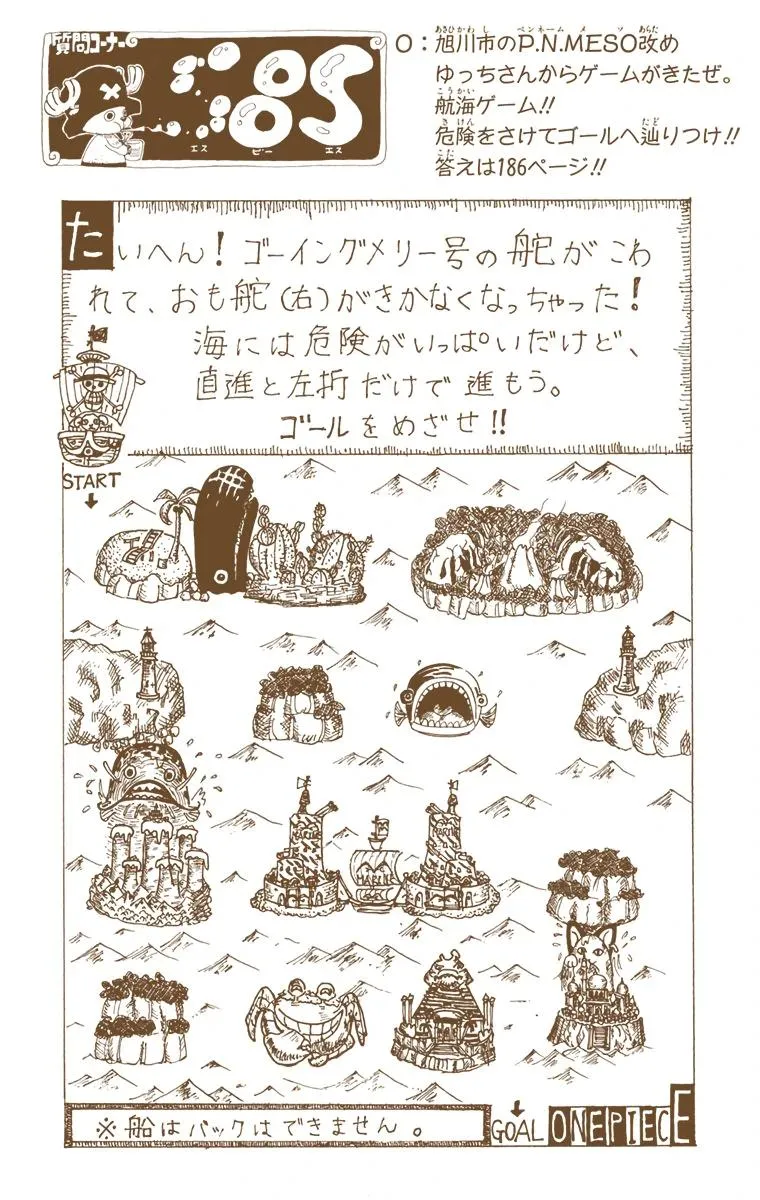 質問コーナー
SBS
エス ビー エス
O：旭川市のP.N.MESO改め
ゆっちさんからゲームがきたぜ。
航海ゲーム!!
危険をさけてゴールへ辿りつけ!!
答えは186ページ!!
たいへん！ゴーイングメリー号の舵がこわ
れて、おも舵（右）がきかなくなっちゃった！
海には危険がいっぱいだけど、
直進と左折だけで進もう。
ゴールをめざせ!!
START
MARINE
MARINE
MARINE
※船はバックはできません。
GOAL ONEPIECE